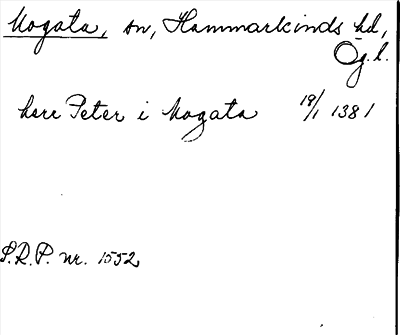 Mogata, sn, Hammarkinds hd,
Ög.l.
herr Peter i Mogata 19/1 1381
S.R.P. nr. 1552